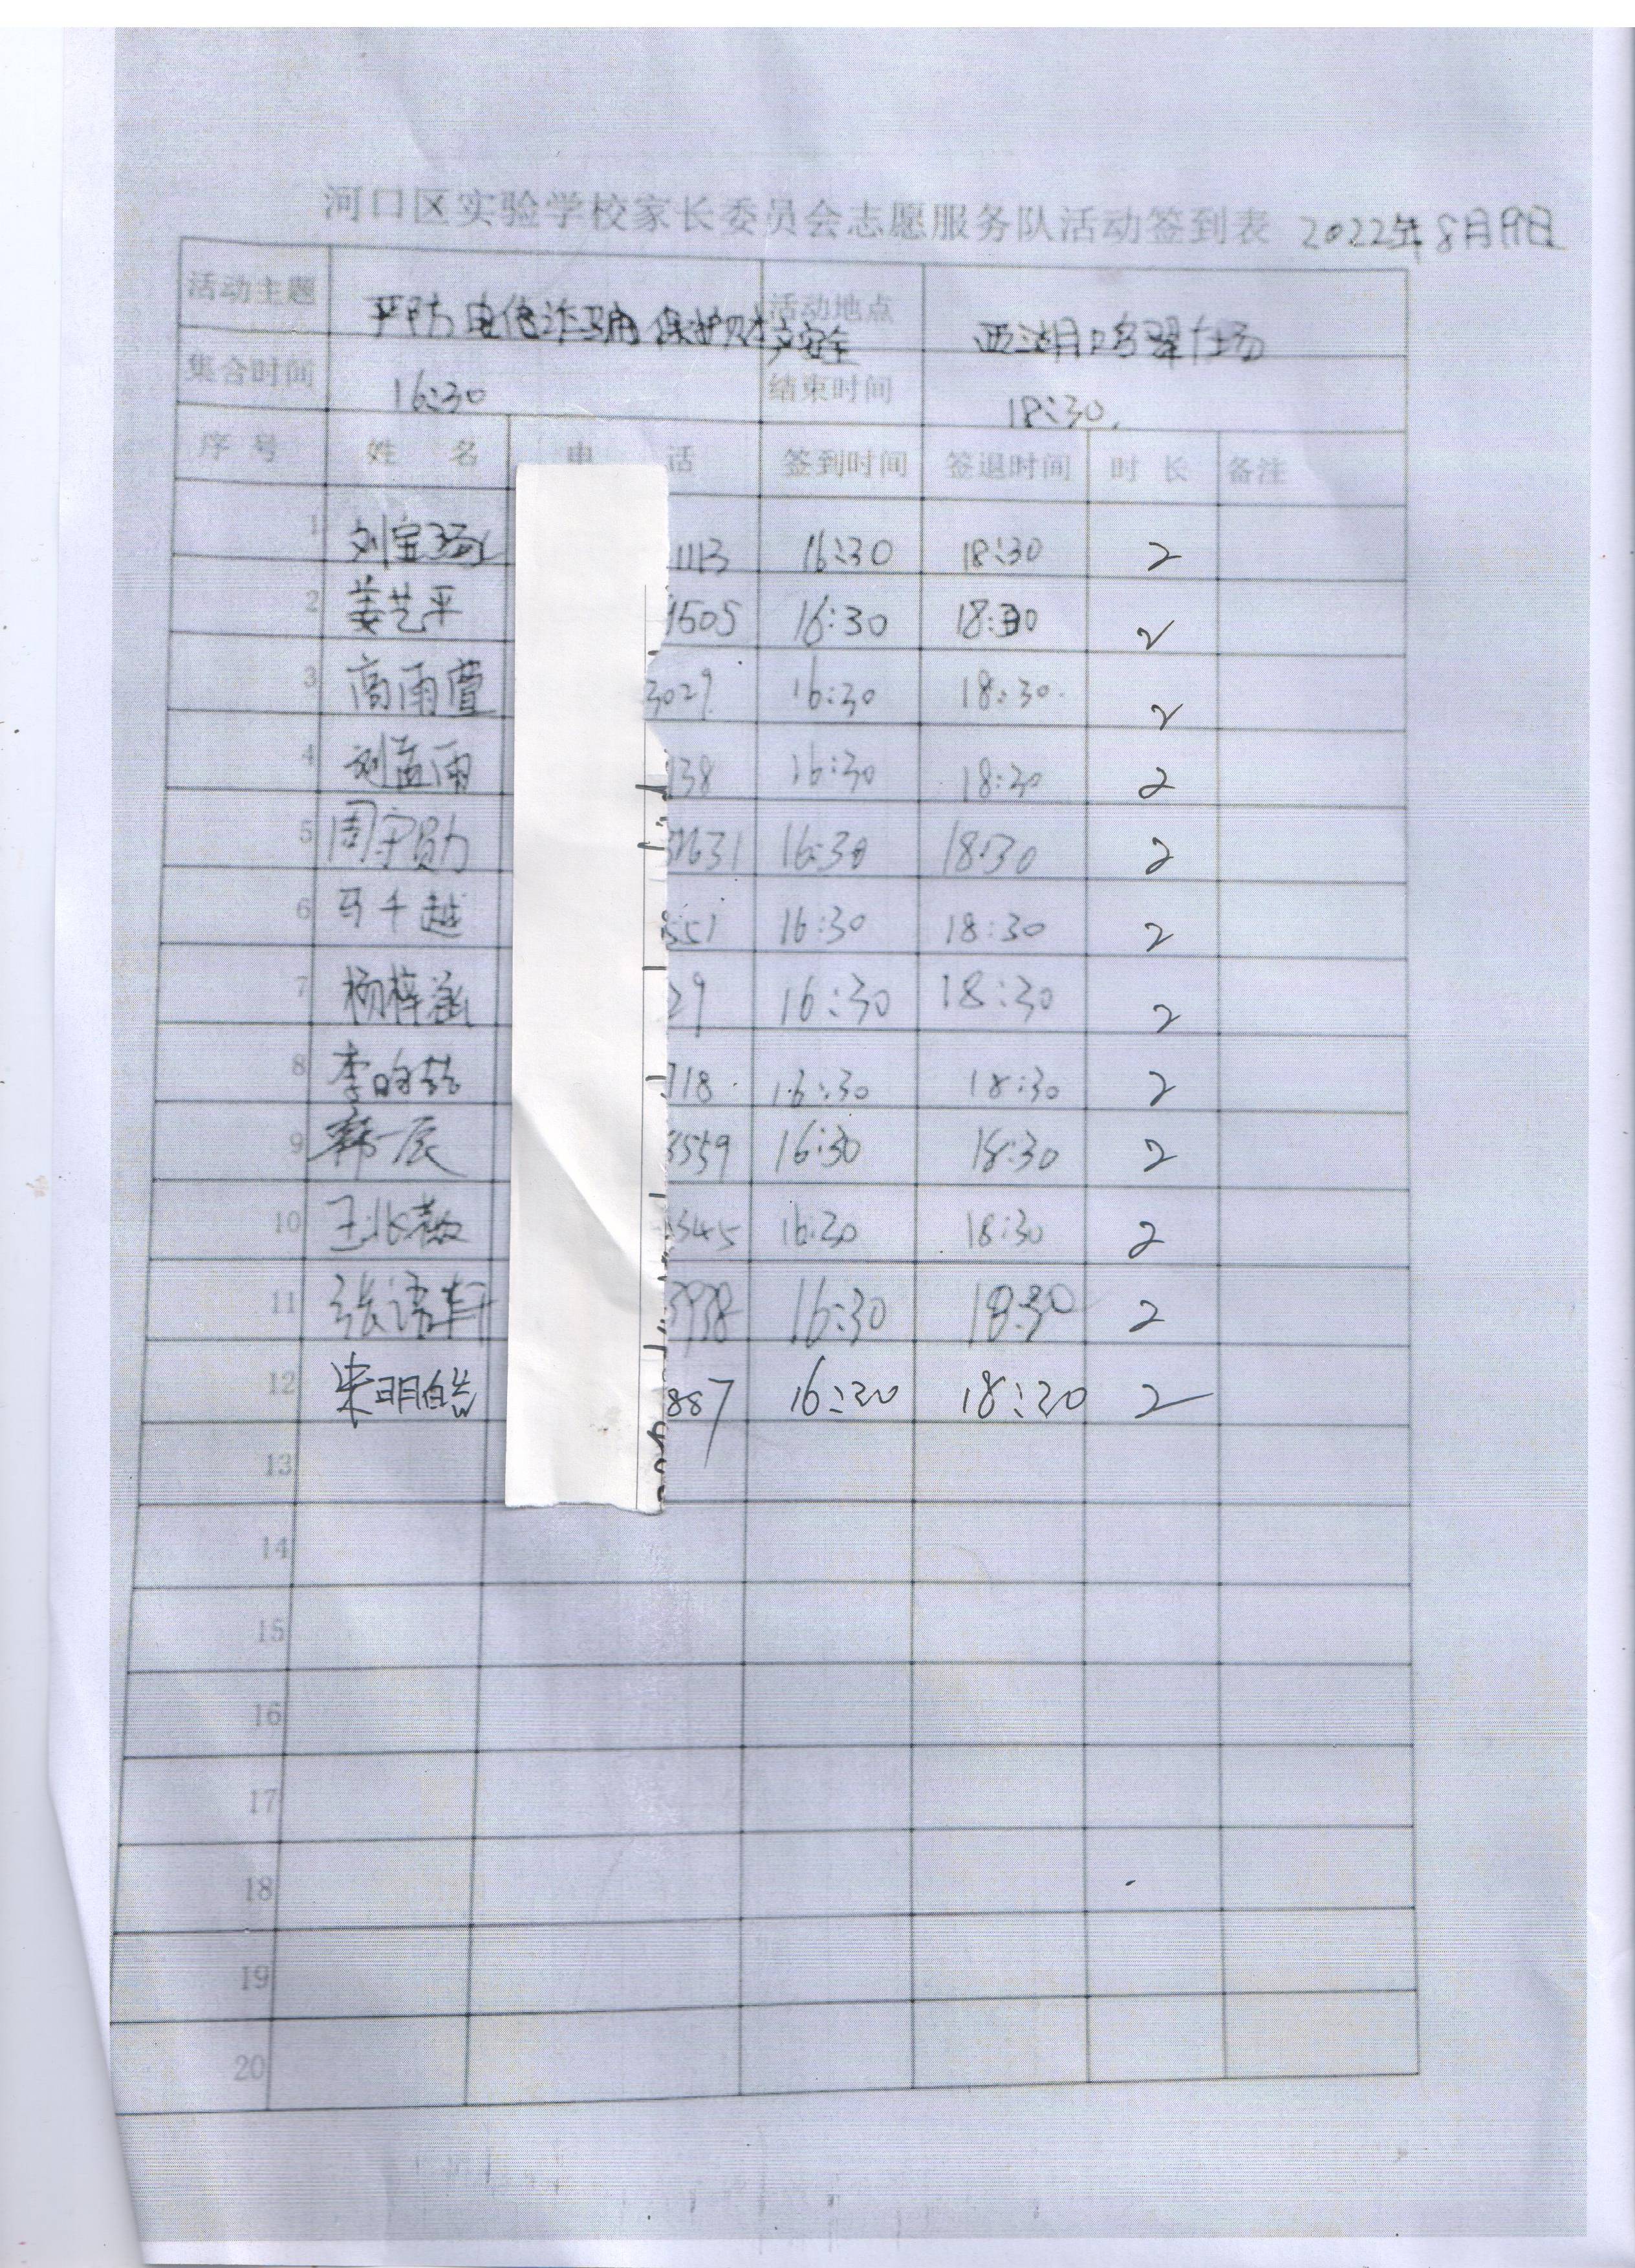 河口区实验学校家长委员会志愿服务队活动签到表 2022年8月19日
活动主题 严防电信诈骗,保护财产安全 活动地点 鸣翠广场
集合时间 16:30 结束时间 18:30
序号 姓 名 电 话 签到时间 签退时间 时 长 备注
1 刘宝 1113 16:30 18:30 2
2 姜艺平 1505 16:30 18:30 2
3 高雨萱 3029 16:30 18:30 2
4 刘孟雨 138 16:30 18:30 2
5 周宇勋 631 16:30 18:30 2
6 马千越 551 16:30 18:30 2
7 杨梓涵 29 16:30 18:30 2
8 李 718 16:30 18:30 2
9 韩一辰 3559 16:30 18:30 2
10 王 345 16:30 18:30 2
11 张语轩 3938 16:30 18:30 2
12 朱明皓 887 16:30 18:30 2
13
14
15
16
17
18
19
20